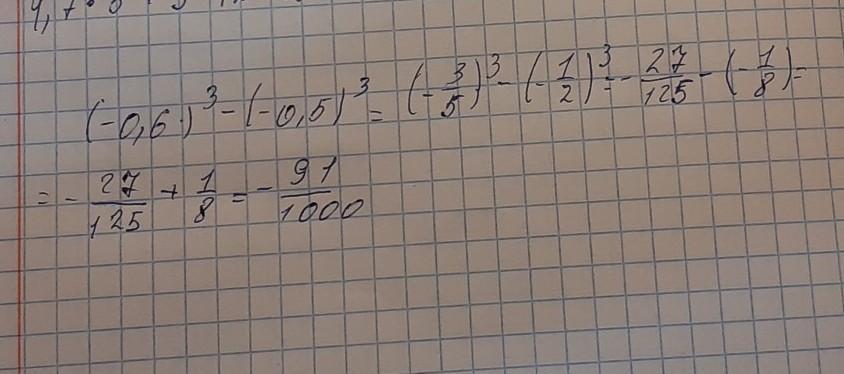 (-0,6)³ - (-0,5)³ = (-3/5)³ - (-1/2)³ = -27/125 - (-1/8) =
= -27/125 + 1/8 = -91/1000